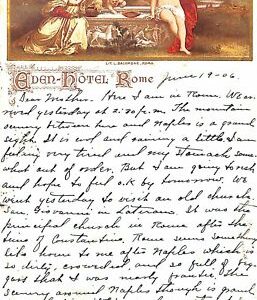 LIT. L. SALOMONE, ROMA
EDEN-HÔTEL ROME
June 19-06.
Dear Mother. Here I am in Rome. We ar-
rived yesterday at 2:30 P.M. The mountain
scenery between here and Naples is a grand
sight. It is cool and raining a little. I am
feeling very tired and my stomach some-
what out of order. But I am going to rest
and hope to feel o.k by tomorrow. We
went yesterday to visit an old church
San. Giovanni in Laterano. It was the
principal church in Rome after the
time of Constantine. Rome seems some thing
like home to me after Naples which is
so dirty, crowded, and so full of
that I was nearly The
scenery around Naples though is grand